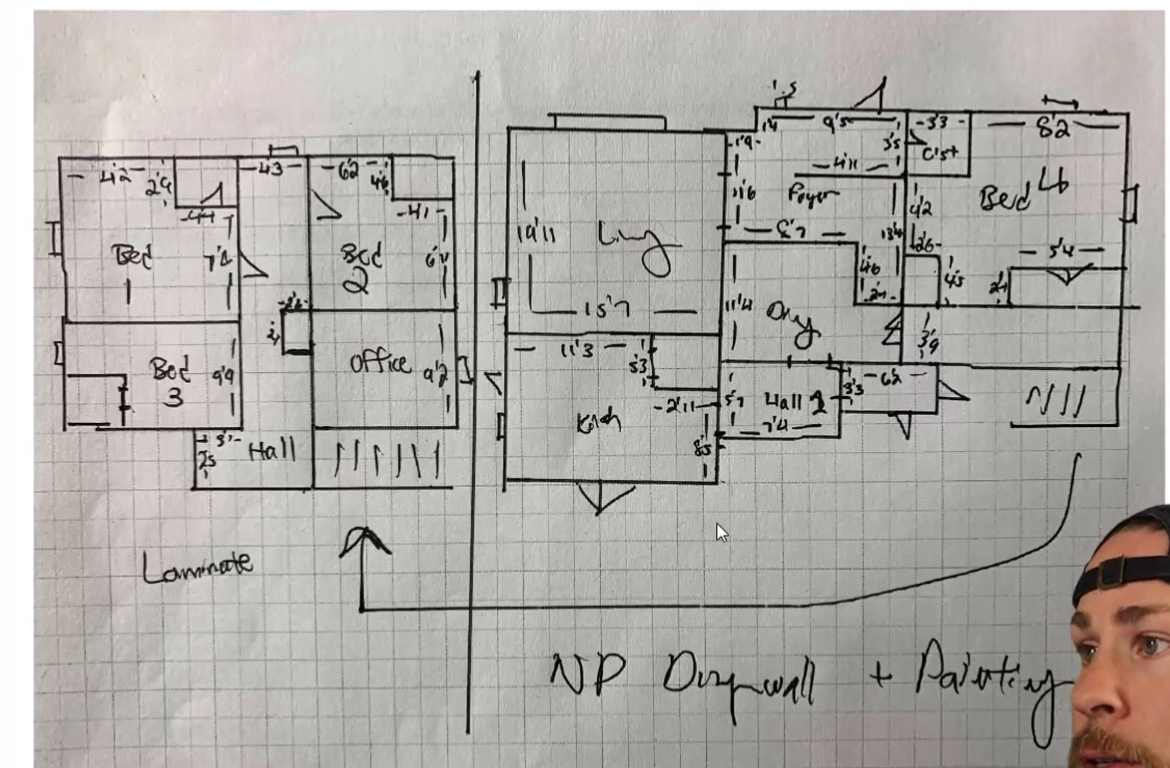 4'2
2'9
4'3
6'2
4'6
4'4
4'1
Bed
1
7'2
Bed
2
Bed
3
9'9
Office
9'2
3'
2's
Hall
Laminate
19'11
15'7
11'3
5'3
2'11
8's
1's
9's
3's
4'11
Foyer
1'9
11'6
8'7
13'4
4'6
11'4
5'7
Hall 1
7'4
3'3
6'2
3'3
8'2
Bed 4
4'2
2'6
4's
5'4
3'9
NP Drywall + Painting